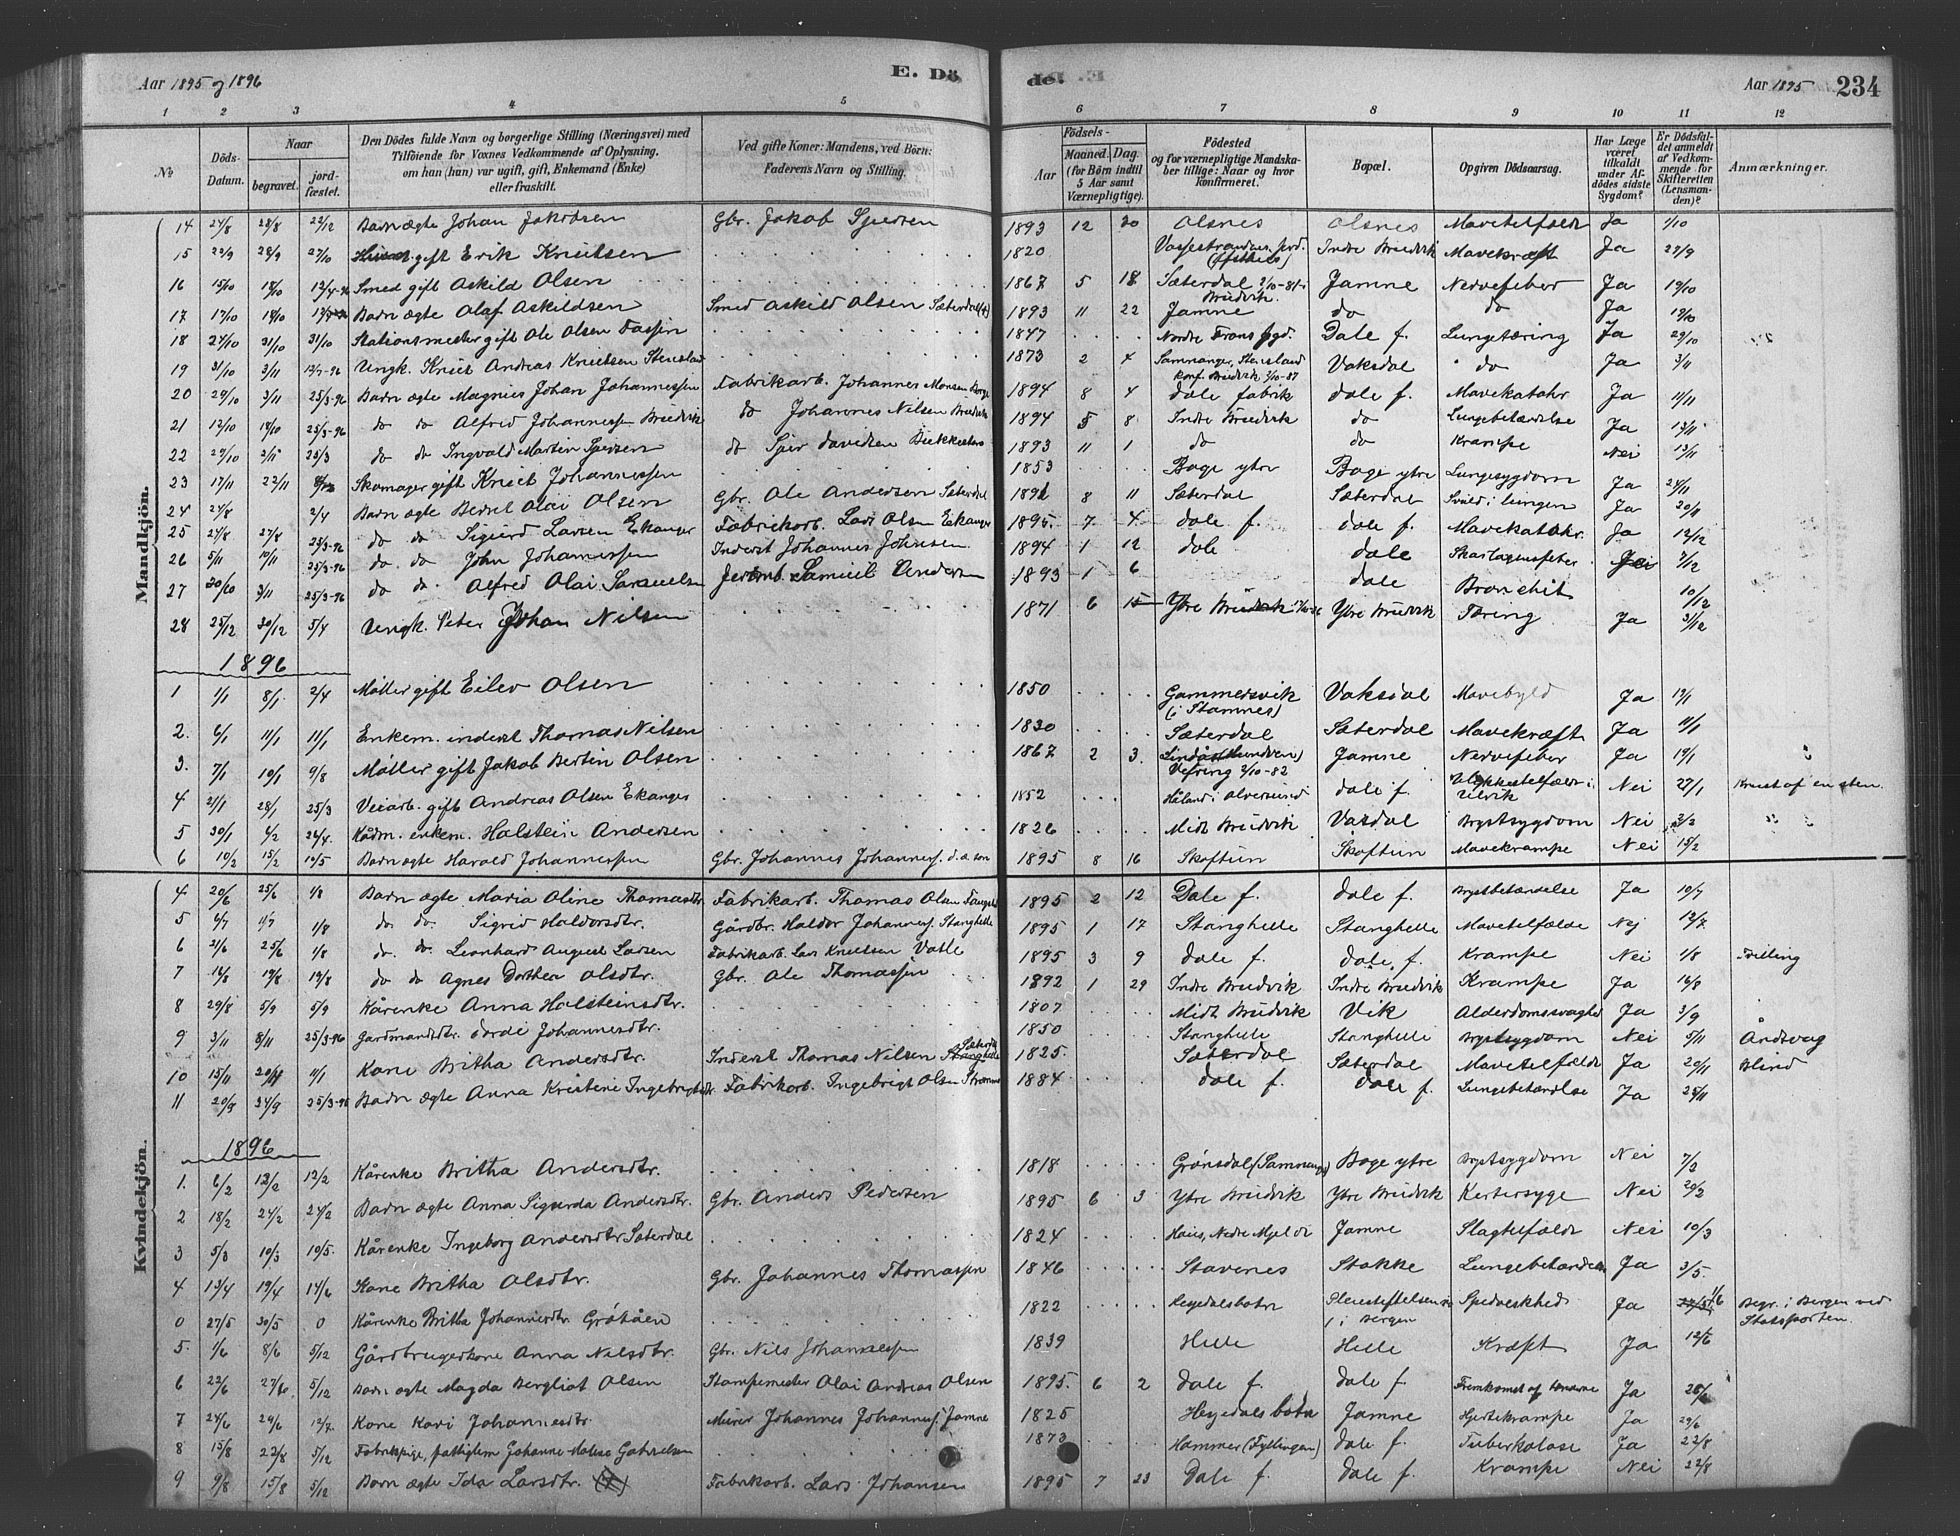 Aar 1895 og 1896
E. Dö
de.
Aar 1895
234
1 2 3 4 5 6 7 8 9 10 11 12
No
Döds-Datum.
Naar
begravet.
jord-fæstet.
Den Dödes fulde Navn og borgerlige Stilling (Næringsvei) med
Tilföiende for Voxnes Vedkommende af Oplysning,
om han (hun) var ugift, gift, Enkemand (Enke)
eller fraskilt.
Ved gifte Koner: Mandens, ved Börn:
Faderens Navn og Stilling.
Födsels-
Aar
Maaned. Dag.
(for Börn indtil
5 Aar samt
Værnepligtige).
Födested
og for værnepligtige Mandska-
ber tillige: Naar og hvor
konfirmeret.
Bopæl.
Opgiven Dödsaarsag.
Har Læge
været
tilkaldt
under Af-
dödes sidste
Sygdom?
Er Dödsfal-
det anmeldt
af Vedkom-
mende for
Skifteretten
(Lensman-
den)?
Anmærkninger.
Mandkjön.
14 24/8 28/8 22/12 Barn ægte Johan Jakobsen Gbr. Jakob Sjursen 1893 12 20 Olsnes Olsnes Mavetilfælde Ja 1/10
15 22/9 28/9 27/10 gift Erik Knutsen 1820 Vossestranden Indre Bruvik Mavekræft Ja 27/9
16 15/10 18/10 12/4-96 Smed gift Askild Olsen 1867 5 18 Sæterdal Bruvik Jamne Nervefeber Ja 19/10
17 17/10 18/10 Barn ægte Olaf Askildsen Smed Askild Olsen Sæterdal 1893 11 22 Jamne do do Ja 19/10
18 27/10 31/10 31/10 Stationsmester gift Ole Olsen Fassen 1847 Nordre Frons pgd. Dale f. Lungetæring Ja 29/10
19 31/10 3/11 Ungk. Knut Andreas Knutsen Stensland 1873 2 4 Samnanger, Stensland konf. Bruvik 2/10-87 Vaksdal do Ja 3/11
20 29/10 3/11 25/3-96 Barn ægte Magnus Johan Johannessen Fabrikarb. Johannes Monsen 1894 8 4 Dale fabrik Dale f. Mavekatahr Ja 11/11
21 12/10 18/10 25/3-96 do do Alfred Johannessen Bruvik do Johannes Nilsen Bruvik 1894 5 8 Indre Bruvik do Lungebetændelse Ja 13/11
22 29/10 2/11 25/3 do do Ingvald Martin Sjursen do Sjur Davidsen 1893 11 1 do do Krampe Nei 13/11
23 17/11 22/11 Skomager gift Knut Johannessen 1853 Boge ytre Boge ytre Lungesygdom Ja 24/11
24 24/8 2/4 Barn ægte Berret Olai Olsen Gbr. Ole Andersen Sæterdal 8 11 Sæterdal Sæterdal i lungen Ja 20/11
25 24/8 27/8 25/3-96 do do Sigurd Larsen Ekanger Fabrikarb. Lars Olsen Ekanger 1895 7 4 Dale f. Dale f. Mavekatahr Ja 12/12
26 5/11 10/11 25/3-96 do do John Johannessen Inderst Johannes Johnsen 1894 1 12 Dale Dale Skarlagensfeber 7/12
27 30/10 3/11 25/3-96 do do Alfred Olai Samuelsen Jernb. Samuel Andersen 1893 1 6 Dale Bronchit 10/12
28 25/12 30/12 5/4 Ungk. Peter Johan Nilsen 1871 6 15 Ytre Bruvik Ytre Bruvik Tæring Ja 31/12
1896
1 1/1 8/1 2/4 Møller gift Eilev Olsen 1850 Gammersvik (i Stamnes) Vaksdal Mavebyld Ja 12/1
2. 6/1 11/1 11/1 Enkem. inderst Thomas Nilsen 1830 Sæterdal Sæterdal Mavekræft Ja 11/1
3. 7/1 10/1 9/8 Møller gift Jakob Bertin Olsen 1867 2 3. Vefring 2/10-82 Jamne Nervefeber Ja 19/1
4 21/1 28/1 25/3 Veiarb. gift Andreas Olsen Ekanger 1852 Håland i Alversund Dale f. Ulykkestilfælde i Ulvik Nei 27/1 Knust af en sten.
5 30/1 4/2 26/4. Kådm. enkem. Holstein Andersen 1826 Midt Bruvik Vaxdal Brystsygdom Nei 3/2
6 10/2 15/2 10/5 Barn ægte Harald Johannessen Gbr. Johannes Johannes. d. a. son 1895 8 16 Skoftun Skoftun Mavekrampe Nei 15/2
Kvindekjön.
4 20/6 25/6 1/8 Barn ægte Maria Oline Thomasdtr Fabrikarb. Thomas Olsen 1895 2 12 Dale f. Dale f. Brystbetændelse Ja 10/7
5 6/7 11/7 1/8 do do Sigrid Haldorsdtr. Gårdbr. Haldor Johannes. Stanghelle 1895 1 17 Stanghelle Stanghelle Mavetilfælde Nej 12/7
6 21/6 25/6 1/8 do do Leonhard August Larsen Fabrikarb. Lars Knutsen Vatle 1895 3 9 Dale f. Dale f. Krampe Nei 1/8 Tvilling
7 14/8 19/8 19/8 do do Agnes Dorthea Olsdtr. Gbr. Ole Thomassen 1892 1 29 Indre Bruvik Indre Bruvik Krampe Ja 16/8
8 29/8 5/9 5/9 Kårenke Anna Holsteinsdtr. 1807 Midt Bruvik Vik Alderdomssvaghed Ja 3/9
9 3/11 8/11 25/3-96 Gårdmandsdtr. Dordi Johannesdtr. 1850 Stanghelle Stanghelle Brystsygdom Nei 5/11 Åndsvag
10 15/11 20/11 11/1 Kone Britha Andersdtr. Inderst Thomas Nilsen Stanghelle Sæterdal 1825. Sæterdal Sæterdal Mavetilfælde Ja 20/11 Blind
11 20/9 24/9 25/3-96 Barn ægte Anna Kristine Ingebrigtsdtr. Fabrikarb. Ingebrigt Olsen 1884 Dale f. Dale f. Lungebetændlse Ja 25/11
1896
1. 6/2 12/2 12/2 Kårenke Britha Andersdtr. 1818 Grønsdal (Samnanger) Boge ytre Brystsygdom Nei 7/2
2 18/2 24/2 24/2 Barn ægte Anna Sigurda Andersdtr. Gbr. Anders Pedersen 1895 6 3 Ytre Bruvik Ytre Bruvik Kertersyge Nei 20/2
3 5/3 10/3 10/5. Kårenke Ingeborg Andersdtr Sæterdal 1824 Haus, Nedre Mjelde Jamne Slagtilfælde Nei 10/3
4 13/4 19/4 14/6 Kone Britha Olsdtr. Gbr. Johannes Thomassen 1846 Stavenes Stokke Lungebetændelse Ja 3/5.
0 27/5 30/5 0 Kårenke Britha Johannesdtr. Gråtåen 1822 Heyedalsbotn Pleiestiftelsen i Bergen Spedalskhed Ja 1/6 Begr. i Bergen ved Statsporten.
5. 1/6 8/6 5/12 Gårdbrugerkone Anna Nilsdtr. Gbr. Nils Johannessen 1839 Helle Helle Kræft Ja 12/6
6 22/6 27/6 5/12 Barn ægte Magda Bergliot Olsen Stampemester Olai Andreas Olsen 1895. 6 2 Dale f. Dale f. Fremkomst af tænderne Ja 25/6
7 24/6 29/6 12/7. Kone Kari Johannesdtr. Murer Johannes Johannes. Jamne 1825 Heyedalsbotn Jamne Hjertekrampe Ja 29/6
8 15/8 22/8 5/12 Fabrikpige, fattiglem Johanne Malene Gabrielsen 1873 Hammer (Fyllingen) Dale f. Tuberkolose Ja 22/8
9 9/8 15/8 5/12 Barn ægte Ida Larsdtr. Fabrikarb. Lars Johansen 1895 7 23 Dale f. Dale f. Krampe Nei 22/8